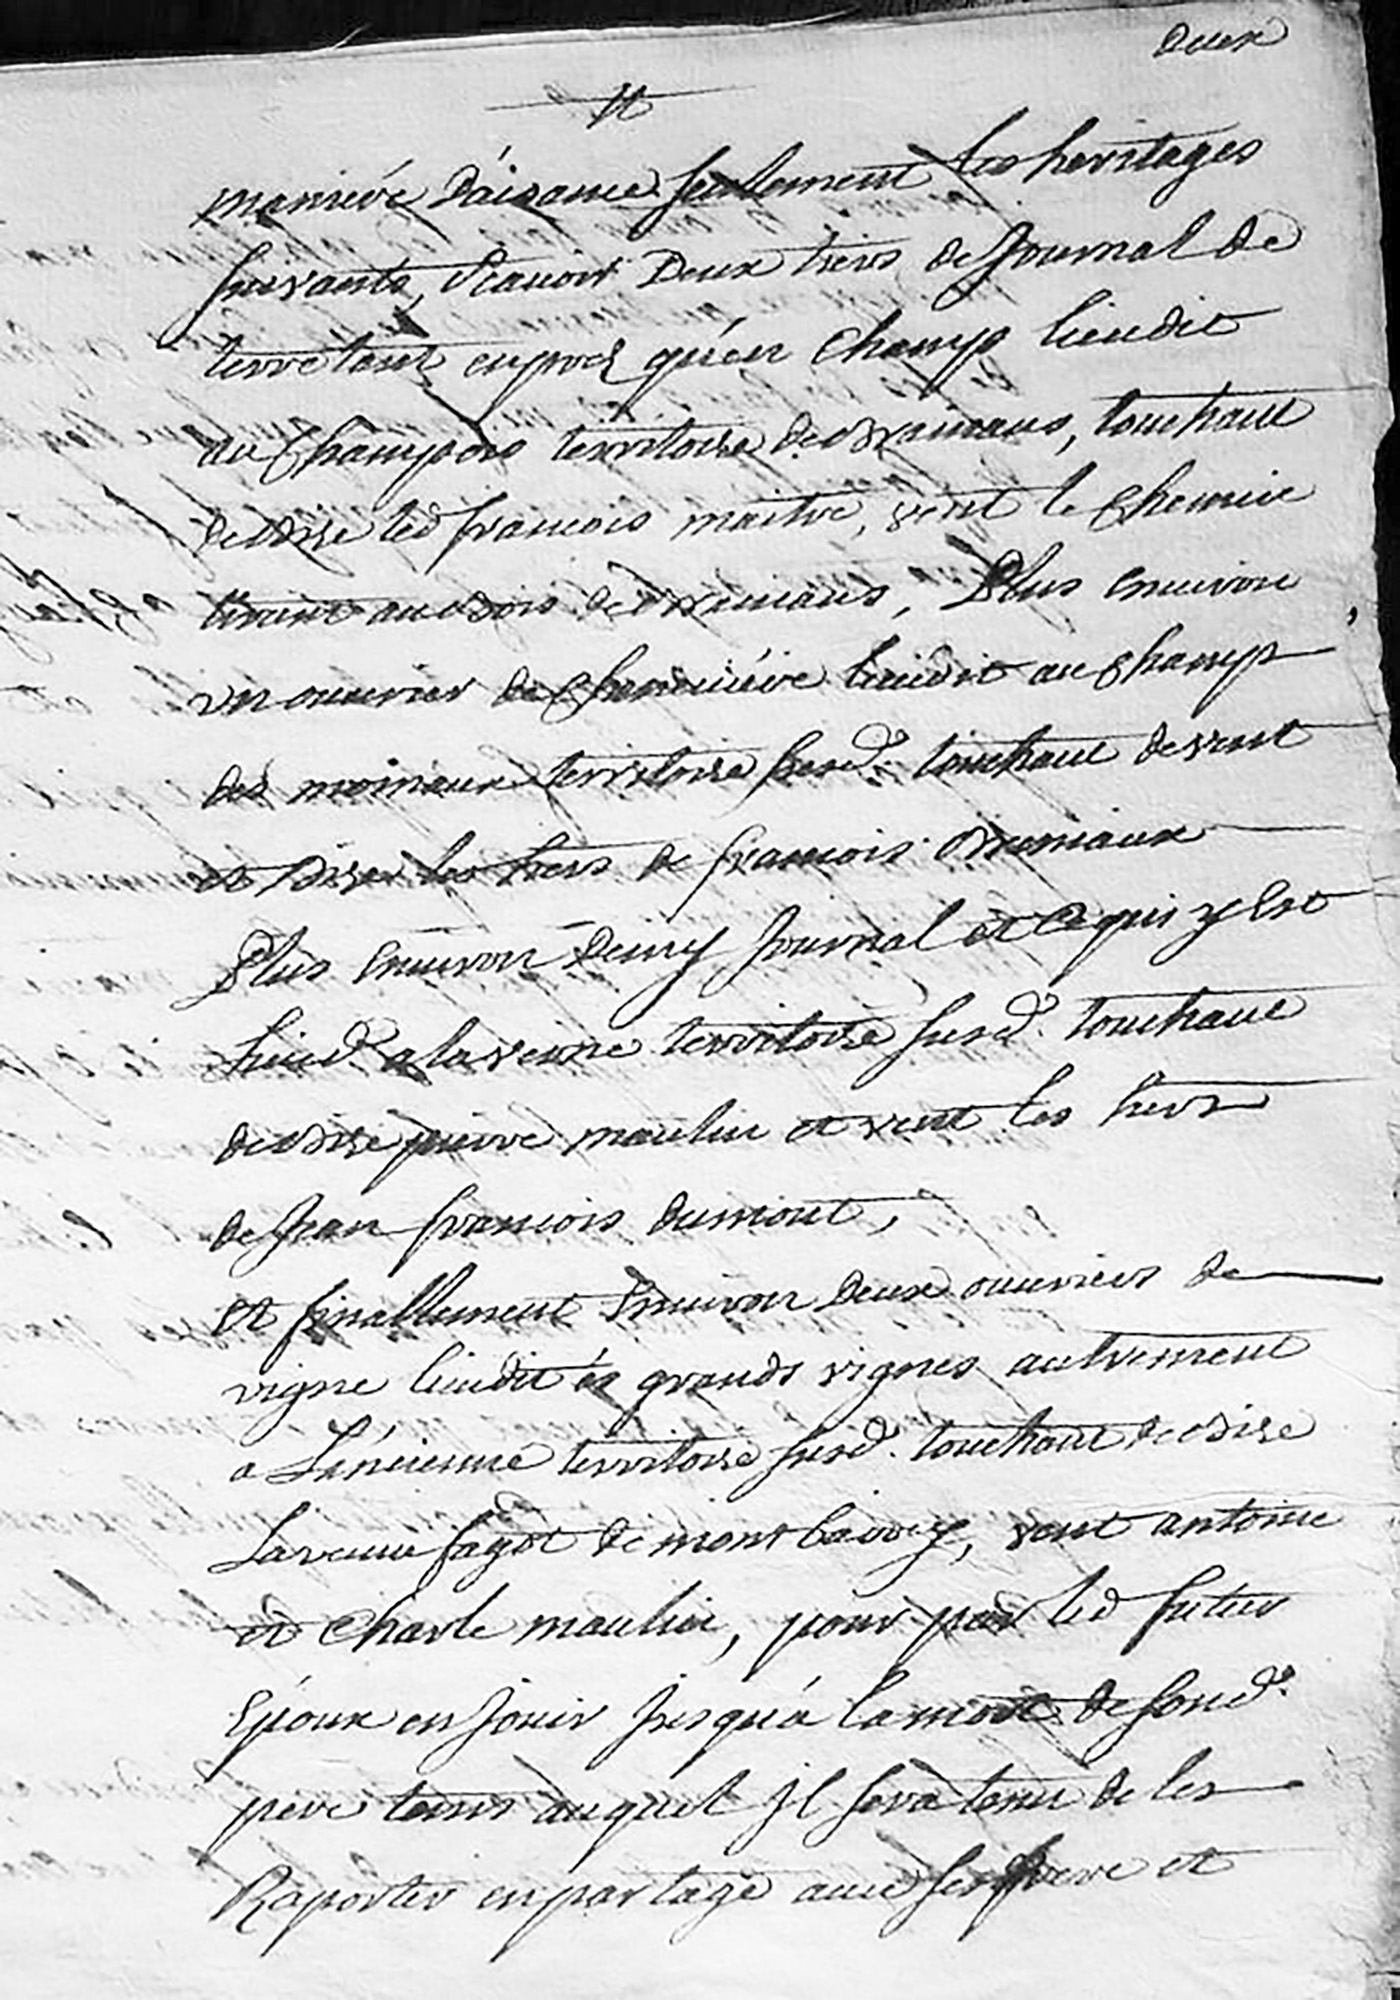 deux
maniére d'aisance seulement les heritages
suivants, scavoir Deux tiers de Journal de
terre tant en prel qu'en champ lieudit
au Champ dois territoire de touchant
de bise led françois maitre, vent le chemin
tirant au bois de Plus Environ
un ouvrier de Chenneviére lieudit au champ
des moineaux territoire susd. touchant de vent
et bise les hers de françois
Plus Environ demy Journal et ce qui y Est
lieud. a la verne territoire susd. touchant
de bise pierre moulin et vent les hers
de Jean françois dumont,
Et finallement Environ deux ouvriers de
vigne lieudit és grands vignes autrement
a L'ancienne territoire susd. touchant de bise
La veuve fagot de montbarrey, vent antoine
et Charle moulin, pour par led futur
Epoux en Jouir Jusqu'a la mort de sond.
pere tems auquel Jl sera tenu de les
Raporter en partage avec ses frere et